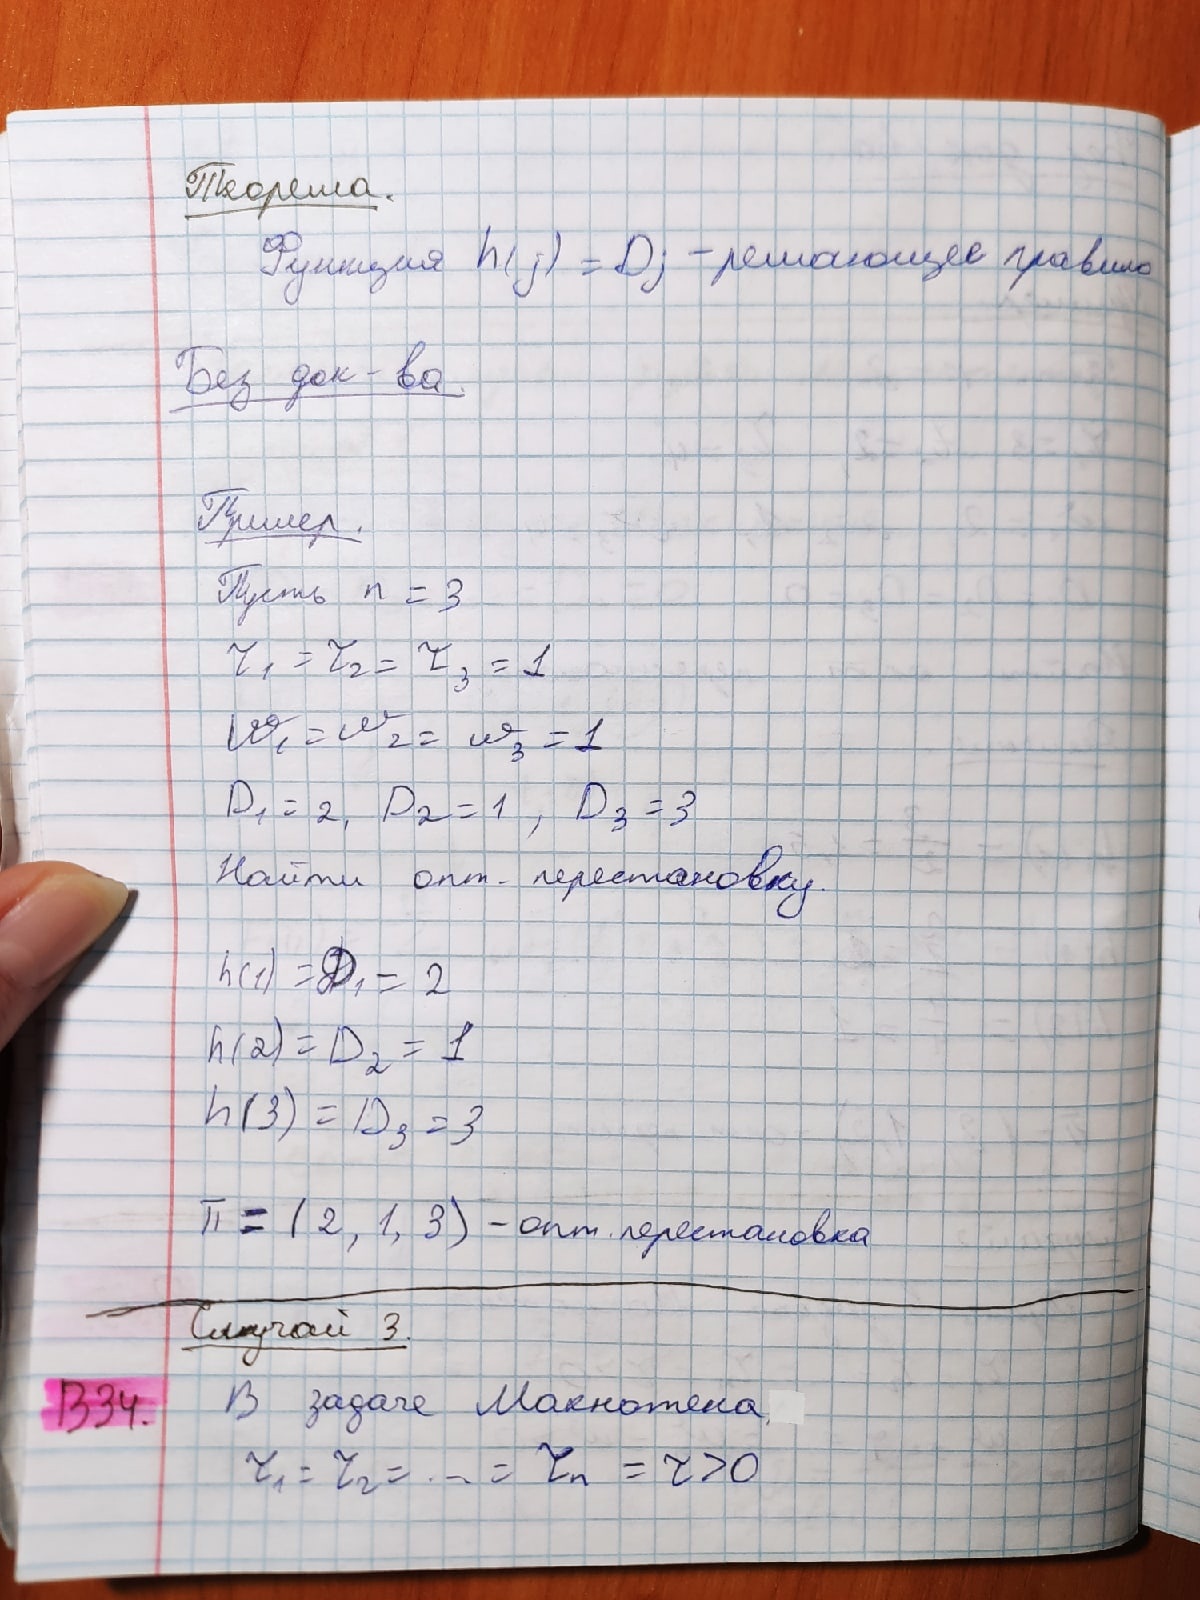 Теорема.
Функция h(j) = Dj - решающее правило
Без док-ва.
Пример.
Пусть n = 3
τ₁ = τ₂ = τ₃ = 1
w₁ = w₂ = w₃ = 1
D₁ = 2, D₂ = 1, D₃ = 3
Найти опт. перестановку.
h(1) = D₁ = 2
h(2) = D₂ = 1
h(3) = D₃ = 3
π = (2, 1, 3) - опт. перестановка
Случай 3.
В34. В задаче Макнотена,
τ₁ = τ₂ = ... = τₙ = τ > 0